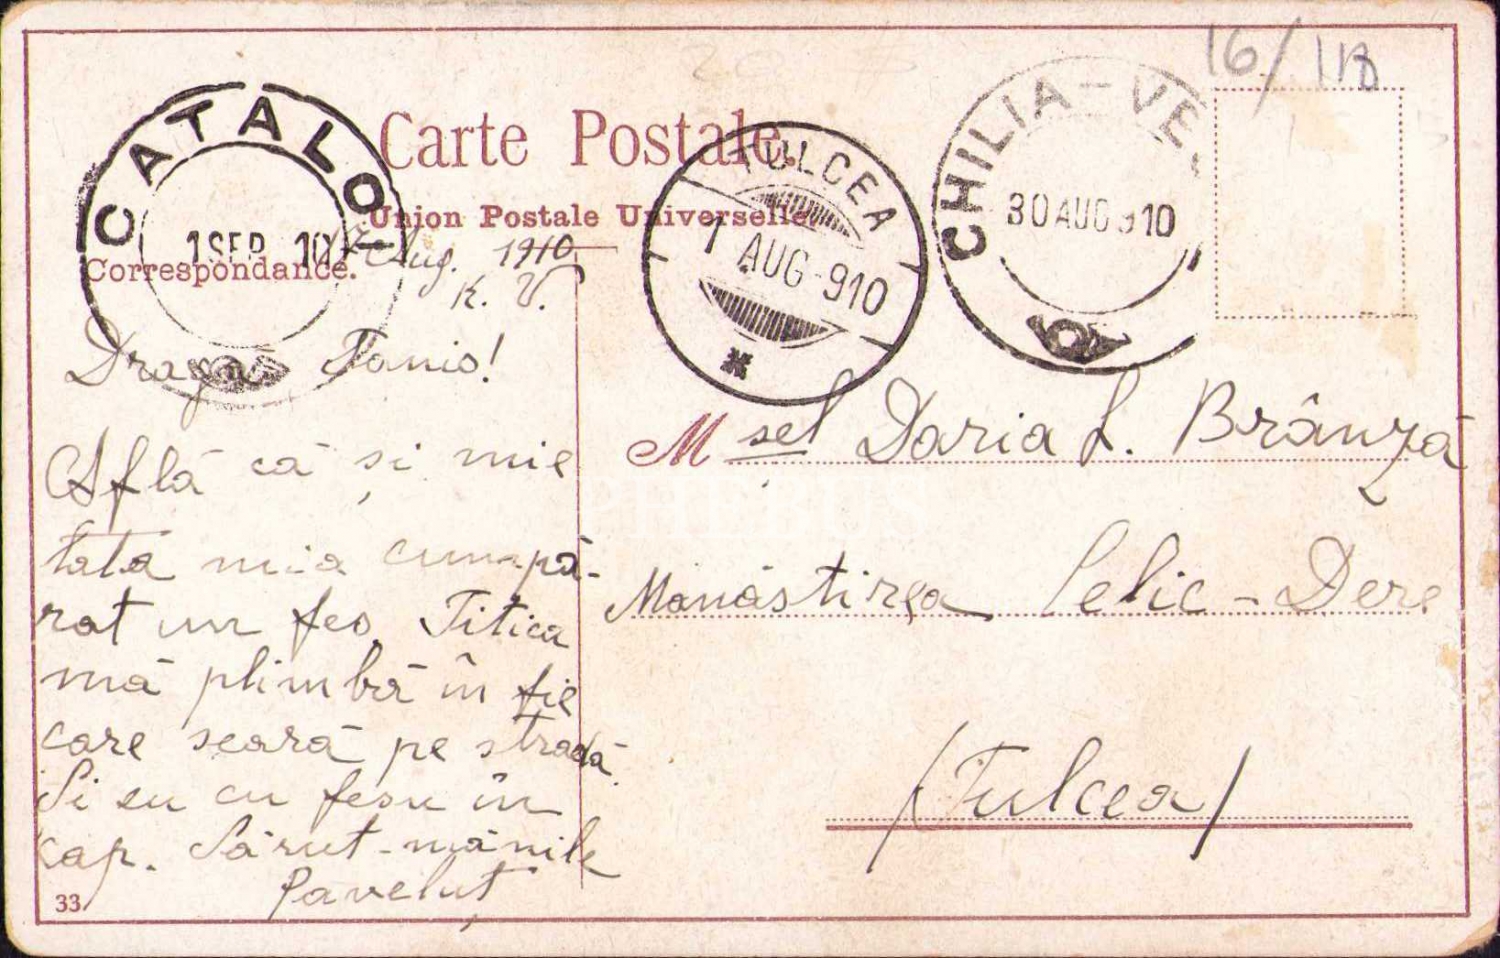 16/118
Carte Postale.
Union Postale Universelle
CATALOI
1 SEP. 10
TULCEA
1 AUG 910
CHILIA-VE
30 AUG 910
Correspondance.
Aug. 1910
K. V.
Dragă Tanio!
Află că și mie
tata mia cumpă-
rat un fes. Titica
mă plimbă în fie
care seară pe stradă.
Și eu cu fesu în
cap. Sărut-mânile
Paveluț
33
M sel Daria L. Brânză
Manăstirea Celic-Dere
(Tulcea)